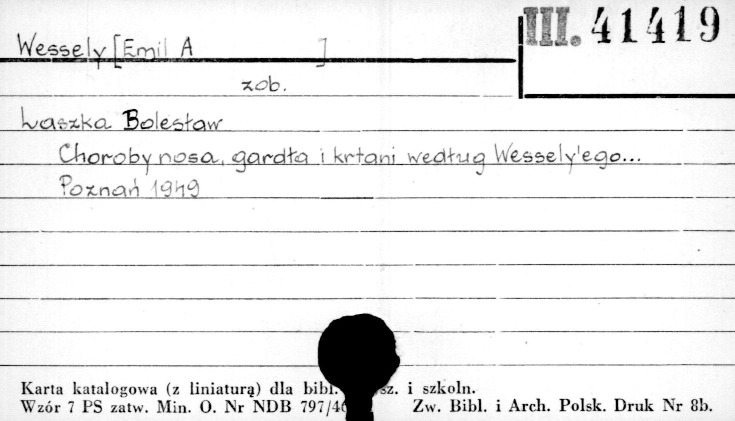 Wessely [Emil A ]
III. 41419
zob.
Laszka Bolesław
Choroby nosa, gardła i krtani według Wessely'ego...
Poznań 1949
Karta katalogowa (z liniaturą) dla bibl. i szkoln.
Wzór 7 PS zatw. Min. O. Nr NDB Zw. Bibl. i Arch. Polsk. Druk Nr 8b.